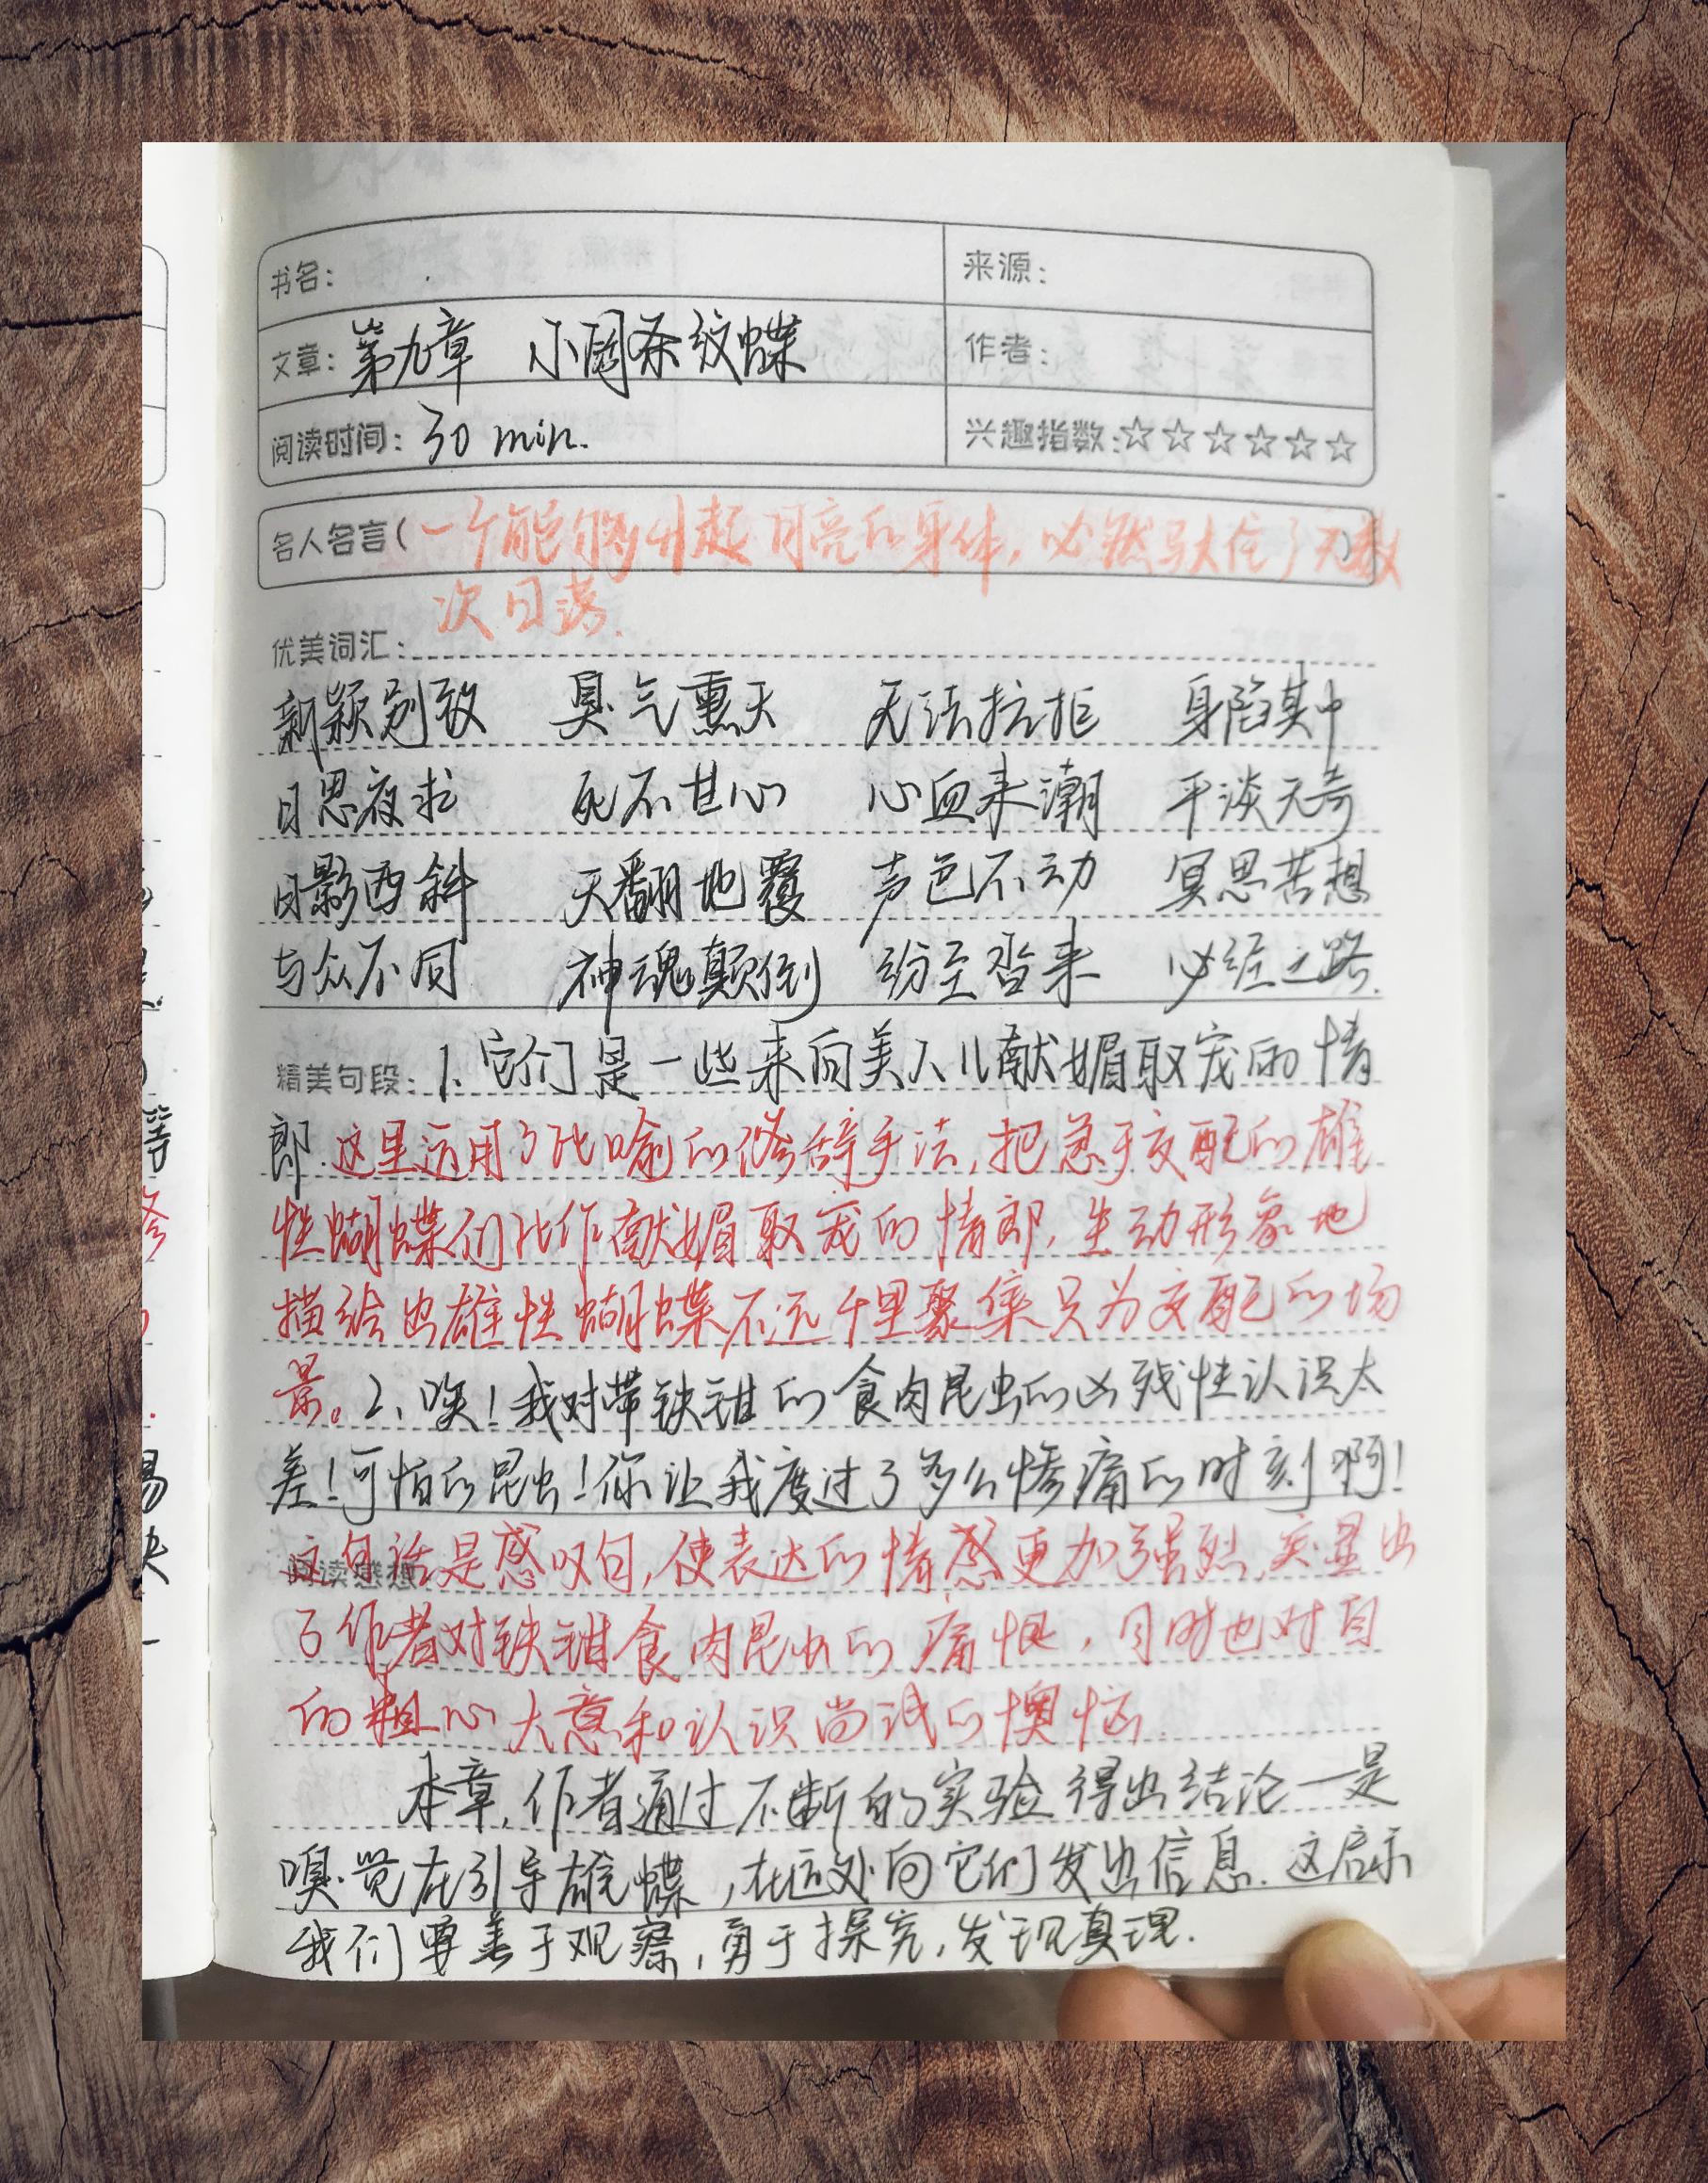 书名: 来源:
文章: 第九章 小阔条纹蝶 作者:
阅读时间: 30 min. 兴趣指数: ☆☆☆☆☆☆
名人名言( 一个能够升起月亮的身体, 必然驮住了无数)
次日落.
优美词汇:
新颖别致 臭气熏天 无法抗拒 身陷其中
日思夜求 死不甘心 心血来潮 平淡无奇
日影西斜 天翻地覆 声色不动 冥思苦想
与众不同 神魂颠倒 纷至沓来 必经之路.
精美句段: 1、它们是一些来向美人儿献媚取宠的情
郎. 这里运用了比喻的修辞手法, 把急于交配的雄
性蝴蝶们比作献媚取宠的情郎, 生动形象地
描绘出雄性蝴蝶不远千里聚集只为交配的场
景。2、唉! 我对带铁钳的食肉昆虫的凶残性认识太
差! 可怕的昆虫! 你让我度过了多么惨痛的时刻啊!
阅读感想
这句话是感叹句, 使表达的情感更加强烈, 突显出
了作者对铁钳食肉昆虫的痛恨, 同时也对自
的粗心大意和认识尚浅的懊恼.
本章, 作者通过不断的实验得出结论一是
嗅觉在引导雄蝶, 在远处向它们发出信息. 这启示
我们要善于观察, 勇于探究, 发现真理.